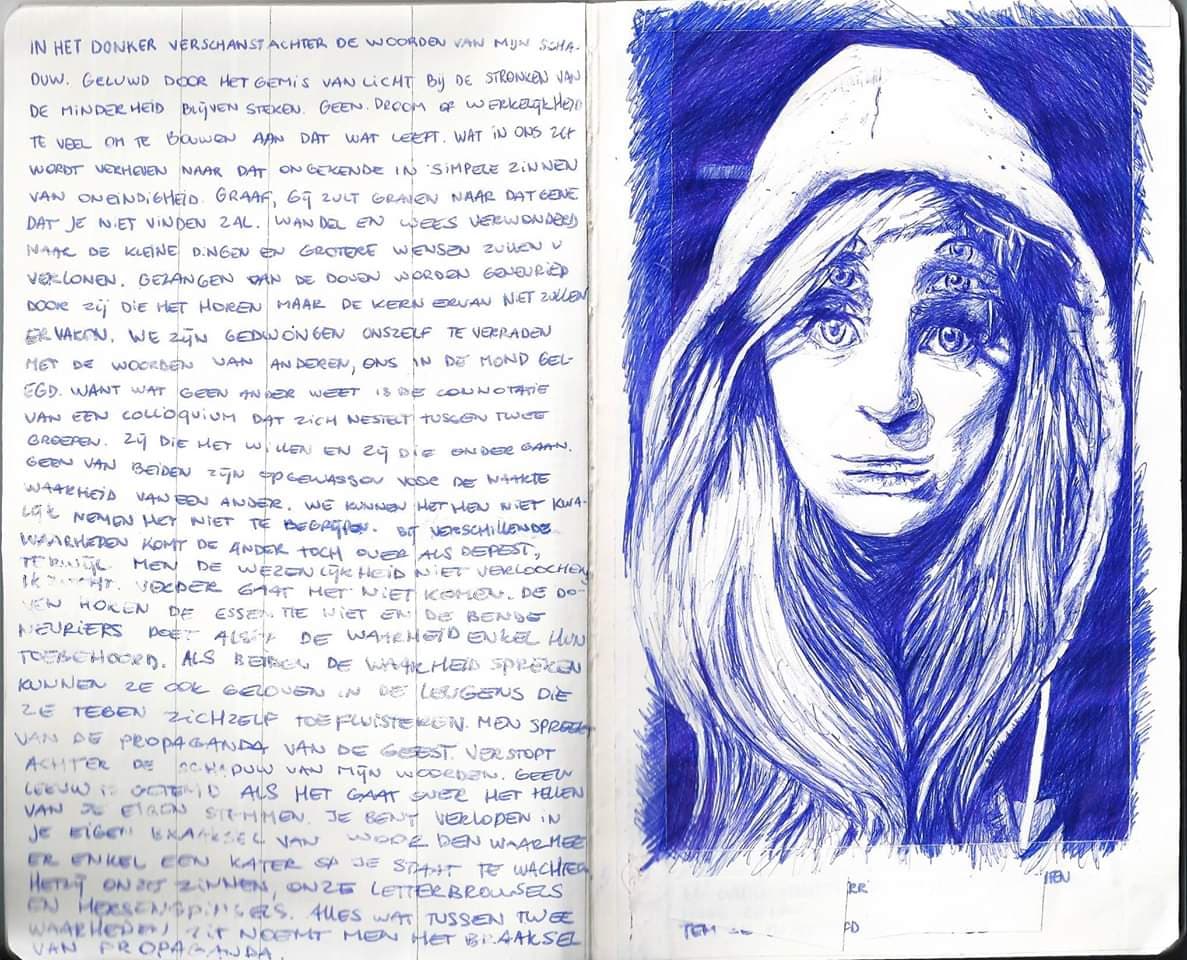 IN HET DONKER VERSCHANST ACHTER DE WOORDEN VAN MIJN SCHA-
DUW. GELUWD DOOR HET GEMIS VAN LICHT BIJ DE STRONKEN VAN
DE MINDERHEID BLIJVEN STEKEN. GEEN DROOM OF WERKELIJKHEID
TE VEEL OM TE BOUWEN AAN DAT WAT LEEFT. WAT IN ONS ZIT
WORDT VERHEVEN NAAR DAT ONGEKENDE IN SIMPELE ZINNEN
VAN ONEINDIGHEID. GRAAF, GIJ ZULT GRAVEN NAAR DATGENE
DAT JE NIET VINDEN ZAL. WANDEL EN WEES VERWONDERD
NAAR DE KLEINE DINGEN EN GROTERE WENSEN ZULLEN U
VERLONEN. GEZANGEN VAN DE DOVEN WORDEN GENEURIED
DOOR ZIJ DIE HET HOREN MAAR DE KERN ERVAN NIET ZULLEN
ERVAREN. WE ZIJN GEDWONGEN ONSZELF TE VERRADEN
MET DE WOORDEN VAN ANDEREN, ONS IN DE MOND GEL-
EGD. WANT WAT GEEN ANDER WEET IS DE CONNOTATIE
VAN EEN COLLOQUIUM DAT ZICH NESTELT TUSSEN TWEE
GROEPEN. ZIJ DIE HET WILLEN EN ZIJ DIE ONDERGAAN.
GEEN VAN BEIDEN ZIJN OPGEWASSEN VOOR DE NAAKTE
WAARHEID VAN EEN ANDER. WE KUNNEN HET HEN NIET KWA-
LIJK NEMEN HET NIET TE BEGRIJPEN. BIJ VERSCHILLENDE
WAARHEDEN KOMT DE ANDER TOCH OVER ALS DE PEST,
TERWIJL MEN DE WEZENLIJKHEID NIET VERLOOCHEN
IK ZUCHT. VERDER GAAT HET NIET KOMEN. DE DO-
VEN HOREN DE ESSENTIE NIET EN DE BENDE
NEURIERS DOET ALSOF DE WAARHEID ENKEL HUN
TOEBEHOORD. ALS BEIDEN DE WAARHEID SPREKEN
KUNNEN ZE OOK GELOVEN IN DE LEUGENS DIE
ZE TEGEN ZICHZELF TOEFLUISTEREN. MEN SPREEKT
VAN DE PROPAGANDA VAN DE GEEST. VERSTOPT
ACHTER DE SCHADUW VAN MIJN WOORDEN. GEEN
LEEUW IS GETEMD ALS HET GAAT OVER HET TELLEN
VAN JE EIGEN STEMMEN. JE BENT VERLOPEN IN
JE EIGEN BRAAKSEL VAN WOORDEN WAARMEE
ER ENKEL EEN KATER OP JE STAAT TE WACHTEN
HETZIJ ONZE ZINNEN, ONZE LETTERBROUWSELS
EN HERSENSPINSELS. ALLES WAT TUSSEN TWEE
WAARHEDEN ZIT NOEMT MEN HET BRAAKSEL
VAN PROPAGANDA.